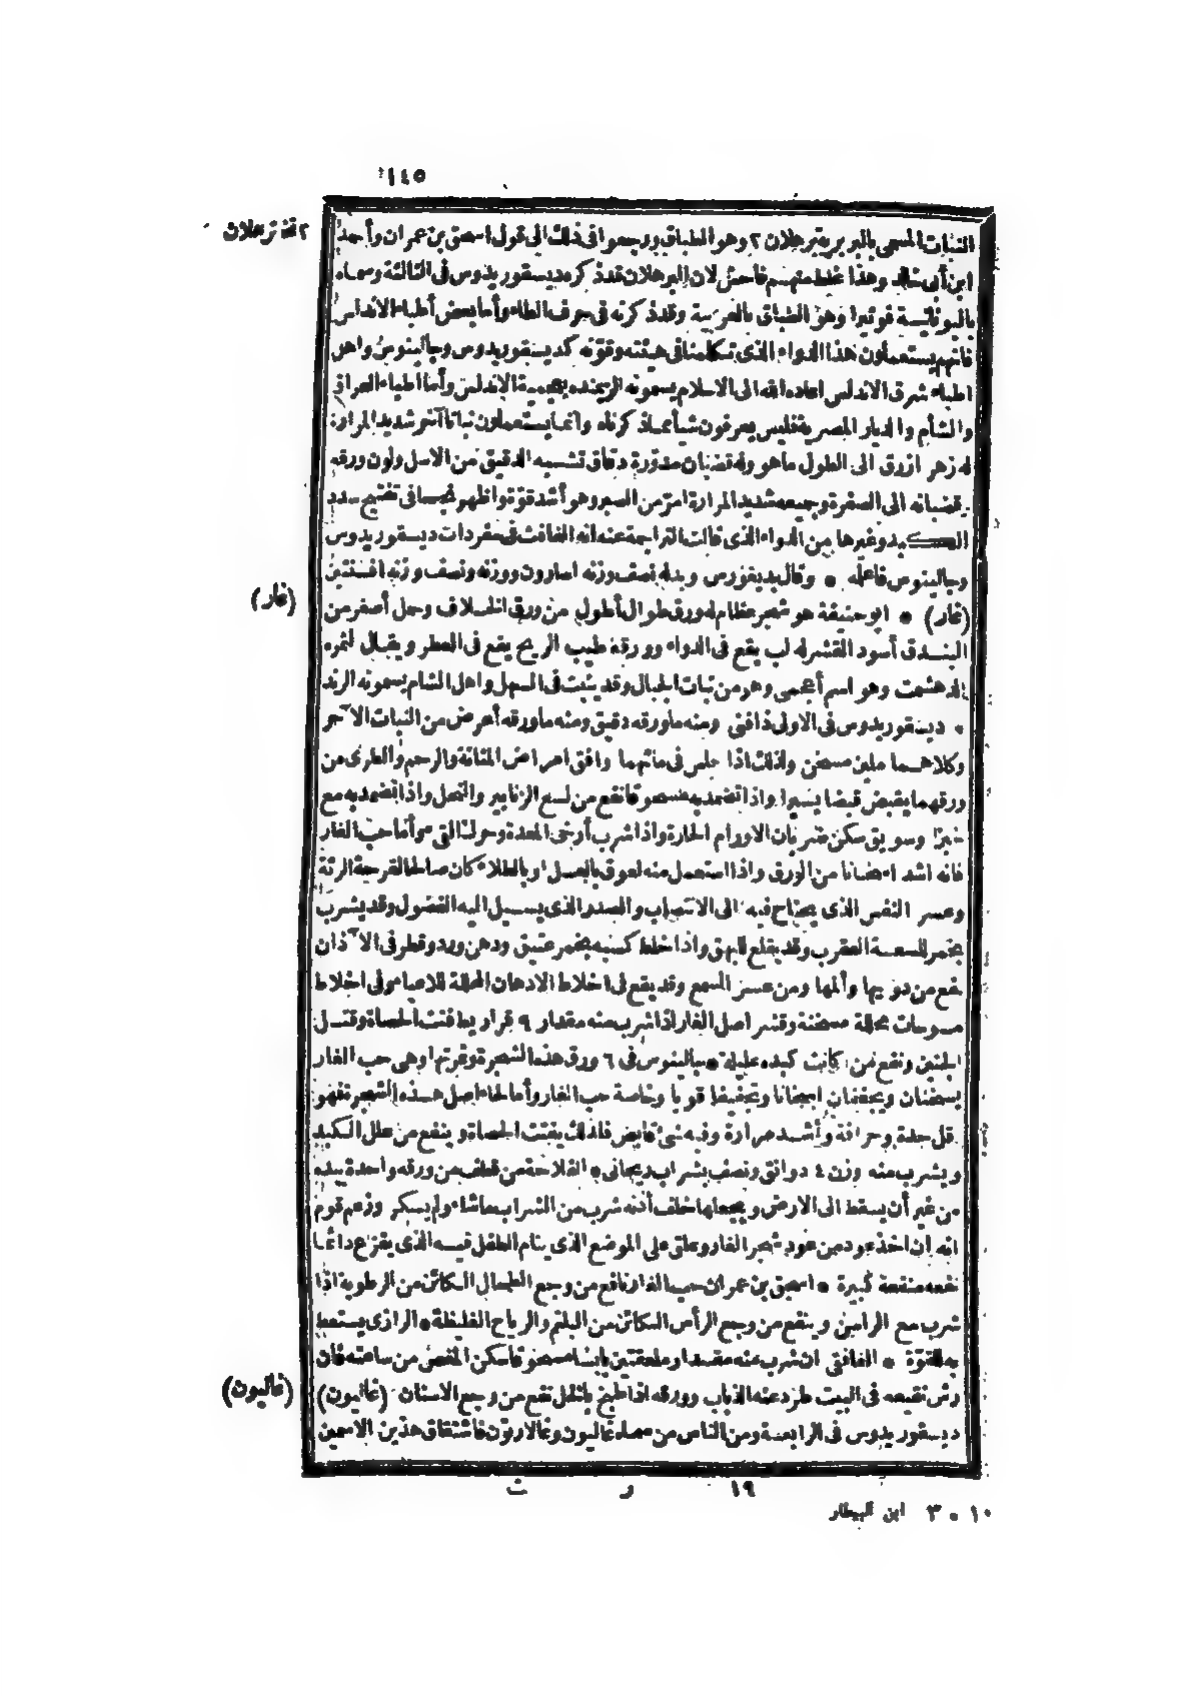 ١٤٥
٢ نخ ترهلان
النبات المسمى بالبربرية ترهلان ٢ وهو الطباق ورجعوا في ذلك الى قول اسحق بن عمران وأحمد
ابن أبي خالد وهذا غلط منهم فاحش لان الترهلان قد ذكره ديسقوريدوس في الثالثة وسماه
باليونانية قونيزا وهو الطباق بالعربية وقد ذكرته في حرف الطاء وأما بعض أطباء الاندلس
فانهم يستعملون هذا الدواء الذي تكلمنا في هيئته وقوته كديسقوريدوس وجالينوس واهل
اطباء شرق الاندلس اعاده الله الى الاسلام يسمونه بعجمية الاندلس وأما اطباء العراق
والشأم والديار المصرية فليس يعرفون شيأ مما ذكرناه وانما يستعملون نباتا آخر شديد المرارة
له زهر ازرق الى الطول ما هو وله قضبان مدورة دقاق تشبه الدقيق من الاسل ولون ورقه
وقضبانه الى الصفرة وجميعه شديد المرارة امر من الصبر وهو أشد قوة واظهر نجحا في تفتيح سدد
الكبد وغيرها من الدواء الذي قالت التراجمة عنه انه الغافث في مفردات ديسقوريدوس
وجالينوس فاعلمه • وقال بديغورس وبدله نصف وزنه اسارون ووزنه ونصف وزنه افسنتين
(غار)
(غار) • ابو حنيفة هو شجر عظام له ورق طوال أطول من ورق الخلاف وحمل أصغر من
البندق أسود القشر له لب يقع في الدواء وورقه طيب الريح يقع في العطر ويقال لثمره
الدهمشت وهو اسم أعجمي وهو من نبات الجبال وقد ينبت في السهل واهل الشام يسمونه الرند
• ديسقوريدوس في الاولى ذافني ومنه ما ورقه دقيق ومنه ما ورقه أعرض من النبات الآخر
وكلاهما ملين مسخن ولذلك اذا جلس في مائهما وافق امراض المثانة والرحم والطري من
ورقهما يقبض قبضا يسيرا واذا تضمد به مسحوقا نفع من لسع الزنابير والنحل واذا تضمد به مع
خبز وسويق سكن ضربان الاورام الحارة واذا شرب أرخى المعدة وحرك القيء وأما حب الغار
فانه اشد اسخانا من الورق واذا استعمل منه لعوق بالعسل او بالطلاء كان صالحا لقرحة الرئة
وعسر النفس الذي يحتاج فيه الى الانتصاب والصدر الذي يسيل اليه الفضول وقد يشرب
بخمر للسعة العقرب وقد يقلع البهق واذا خلط كسبه بخمر عتيق ودهن ورد وقطر في الآذان
نفع من دويها وألمها ومن عسر السمع وقد يقع في اخلاط الادهان المحللة للاعياء وفي اخلاط
مسوحات محللة مسخنة وقشر اصل الغار اذا شرب منه مقدار ٩ قراريط فتت الحصاة وقتل
الجنين ونفع من كانت كبده عليلة • جالينوس في ٦ ورق هذه الشجرة وثمرتها وهي حب الغار
يسخنان ويجففان اسخانا وتجفيفا قويا وخاصة حب الغار وأما لحاء اصل هذه الشجرة فهو
أقل حدة وحرافة وأشد مرارة وفيه شيء قابض فلذلك يفتت الحصاة وينفع من علل الكبد
ويشرب منه وزن ٤ دوانق ونصف بشراب ريحاني • الفلاحة من قطف من ورقه واحدة بيده
من غير أن يسقط الى الارض ويجعلها خلف أذنه شرب من الشراب ما شاء ولم يسكر وزعم قوم
انه ان اخذ عود من عود شجر الغار وعلق على الموضع الذي ينام الطفل فيه الذي يفزع دائما
نفعه منفعة كبيرة • اسحق بن عمران حب الغار نافع من وجع الطحال الكائن من الرطوبة اذا
شرب مع الراسن وينفع من وجع الرأس الكائن من البلغم والرياح الغليظة • الرازي يستعط
به للقوة • الغافقي ان شرب منه مقدار ملعقتين يابسا مسحوقا سكن المغص من ساعته فان
(غاليون)
رش نقيعه في البيت طرد عنه الذباب وورقه اذا طبخ بالخل نفع من وجع الاسنان (غاليون)
ديسقوريدوس في الرابعة ومن الناس من سماه غاليون وغالاريون فاشتقاق هذين الاسمين
١٩ ر ت
١٠ • ٣ ابن البيطار